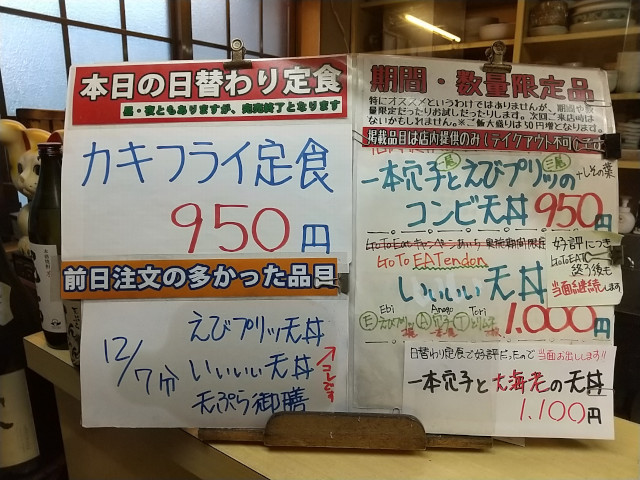 本日の日替わり定食
昼・夜ともありますが、完売終了となります
カキフライ定食
950円
前日注文の多かった品目
12/7分
えびプリッツ天丼
いいいい天丼
天ぷら御膳
↑コレです
期間・数量限定品
特にオススメというわけではありませんが、期間や数
量限定だったりお試しだったりします。次回ご来店時は
ないかもしれません。※ご飯大盛りは50円増となります。
掲載品目は店内提供のみ(テイクアウト不可
一本穴子とえびプリッツの
+しその葉
コンビ天丼 950円
GoToEatキャンペーン
GoTo EATendon
いいいい天丼
好評につき
GoToEAT
終了後も
当面継続します
Ebi Anago Tori
1.000円
日替わり定食で好評だったので 当面お出しします!!
一本穴子と大海老の天丼
1.100円